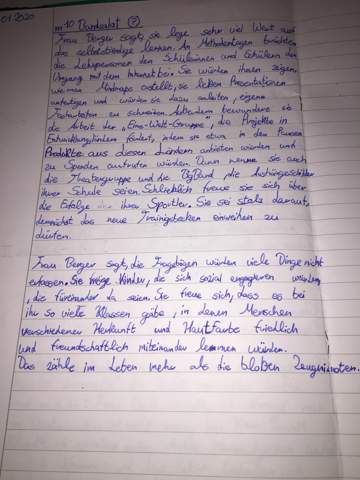 01.2020
nr. 10 Bundesblatt (?)
Frau Berger sagt, sie lege sehr viel Wert auf
das selbstständige lernen. An Methodentagen brächten
die Lehrpersonen den Schülerinnen und Schülern den
Umgang mit dem Internet bei. Sie würden ihnen zeigen,
wie man Mindmaps erstellt, sie ließen Präsentationen
anfertigen und würden sie dazu anleiten, eigene
Facharbeiten zu schreiben. Außerdem bewundere sie
die Arbeit der "Eine-Welt-Gruppe", die Projekte in
Entwicklungsländern fördert, indem sie etwa in den Pausen
Produkte aus diesen Ländern anbieten würden und
zu Spenden aufrufen würden. Dann nenne sie auch
die Theatergruppe und die BigBand, die Aushängeschilder
ihrer Schule seien. Schließlich freue sie sich über
die Erfolge ihrer Sportler. Sie sei stolz darauf,
demnächst das neue Trainigsbecken einweihen zu
dürfen.
Frau Berger sagt, die Fragebögen würden viele Dinge nicht
erfassen. Sie möge Kinder, die sich sozial engagieren würden
, die füreinander da seien. Sie freue sich, dass es bei
ihr so viele Klassen gäbe, in denen Menschen
verschiedener Herkunft und Hautfarbe friedlich
und freundschaftlich miteinander lernen würden.
Das zähle im Leben mehr als die bloßen Zeugnisnoten.